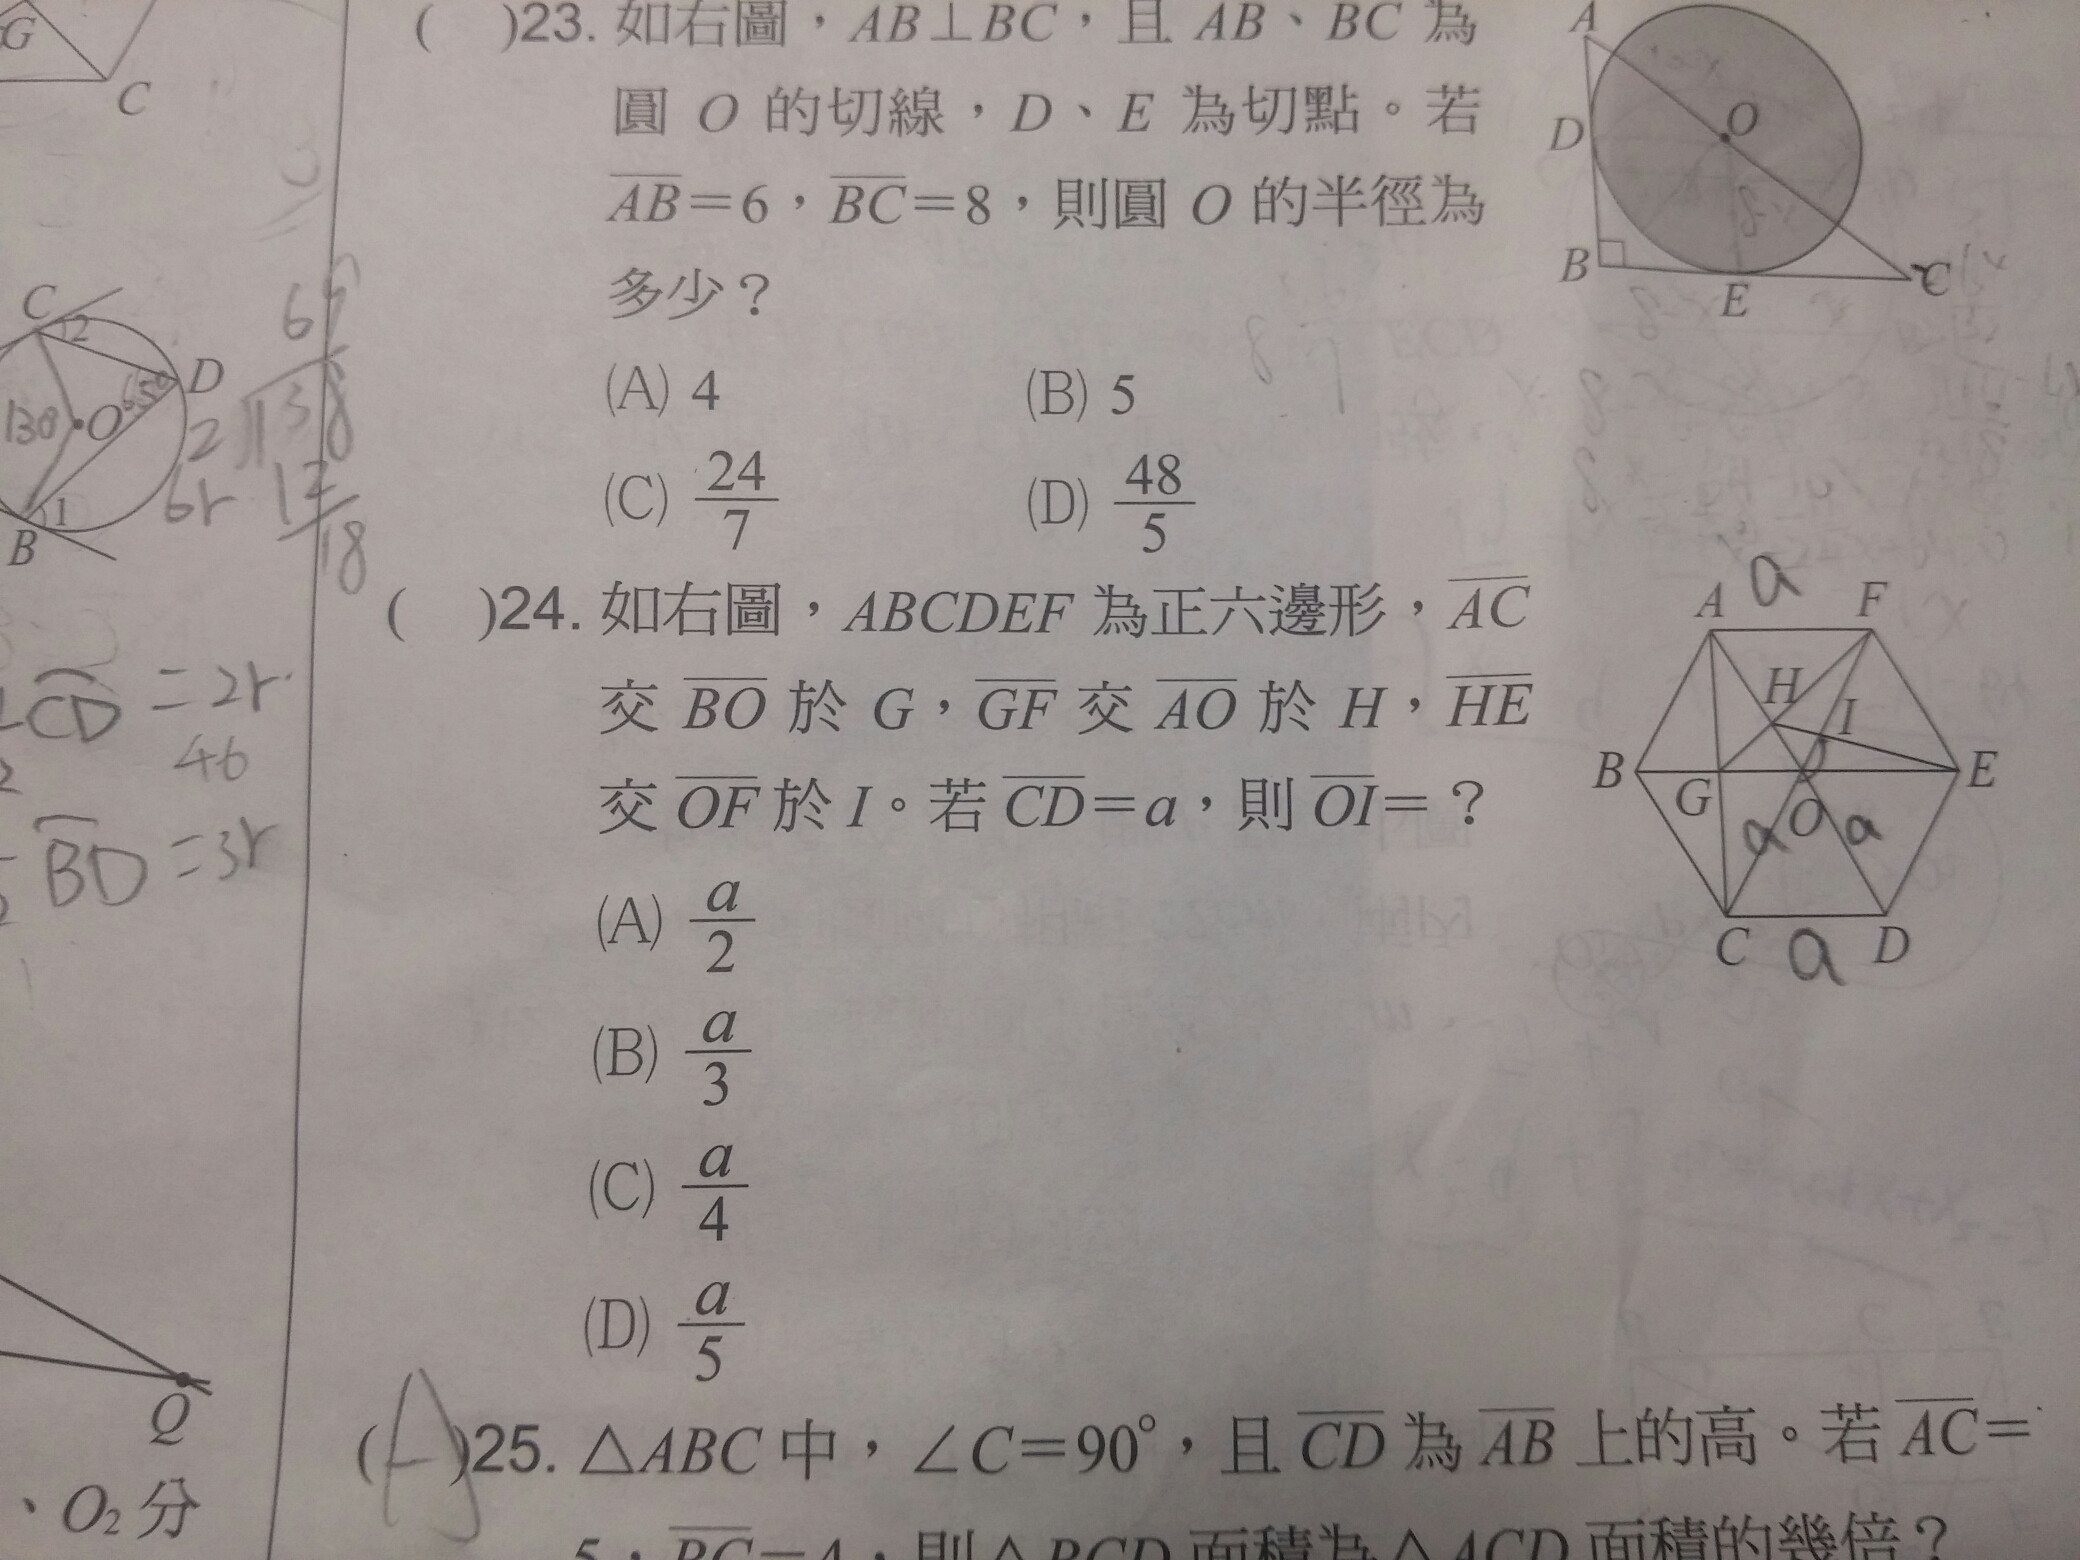 ( )23. 如右圖，AB⊥BC，且 AB、BC 為
圓 O 的切線，D、E 為切點。若
AB=6，BC=8，則圓 O 的半徑為
多少？
(A) 4 (B) 5
(C) 24/7 (D) 48/5
A
D
O
B
E
C
( )24. 如右圖，ABCDEF 為正六邊形，AC
交 BO 於 G，GF 交 AO 於 H，HE
交 OF 於 I。若 CD=a，則 OI=？
(A) a/2
(B) a/3
(C) a/4
(D) a/5
A a F
H
I
B G O E
a a
C a D
(A)25. △ABC 中，∠C=90°，且 CD 為 AB 上的高。若 AC=
5，BC=4，則△BCD 面積為△ACD 面積的幾倍？
G
C
C
2
D
65°
130
O
1
B
69
2 138
12
18
CD =2r
46
BD =3r
Q
、O₂ 分